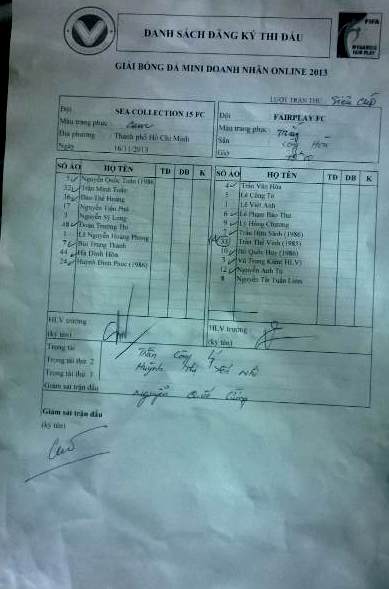 DANH SÁCH ĐĂNG KÝ THI ĐẤU
FIFA
FAIR PLAY
GIẢI BÓNG ĐÁ MINI DOANH NHÂN ONLINE 2013
LƯỢT TRẬN THỨ: Siêu Cúp
Đội SEA COLLECTION 15 FC
Màu trang phục Cam
Địa phương Thành phố Hồ Chí Minh
Ngày 16/11/2013
Đội FAIRPLAY FC
Màu trang phục Trắng
Sân
Giờ
SỐ ÁO HỌ TÊN TĐ DB K
Nguyễn Quốc Tuấn (1986
33 Trần Minh Toàn
Đào Thế Hoàng
17 Nguyễn Tiến Phú
3 Nguyễn Sỹ Long
Đoàn Trương Thi
1 Lê Nguyễn Hoàng Phong
7 Bùi Trung Thành
44 Hà Đình Hòa
Huỳnh Đình Phúc (1986)
SỐ ÁO HỌ TÊN TĐ DB K
Trần Văn Hòa
Lê Công Tố
1 Lê Việt Anh
6 Lê Phạm Bảo Thu
9 Lý Hồng Chương
Trần Hữu Sành (1986)
Trần Thế Vinh (1985)
10 Hồ Quốc Huy (1986)
Vũ Trọng Kiêm( HLV)
12 Nguyễn Anh Tú
8 Nguyễn Tôt Tuấn Liêm
HLV trưởng
(ký tên)
HLV trưởng
(ký tên)
Trọng tài Trần Công Lý
Trọng tài thứ 2 Huỳnh
Trọng tài thứ 3
Giám sát trận đấu Nguyễn Quốc
Giám sát trận đấu
(ký tên)